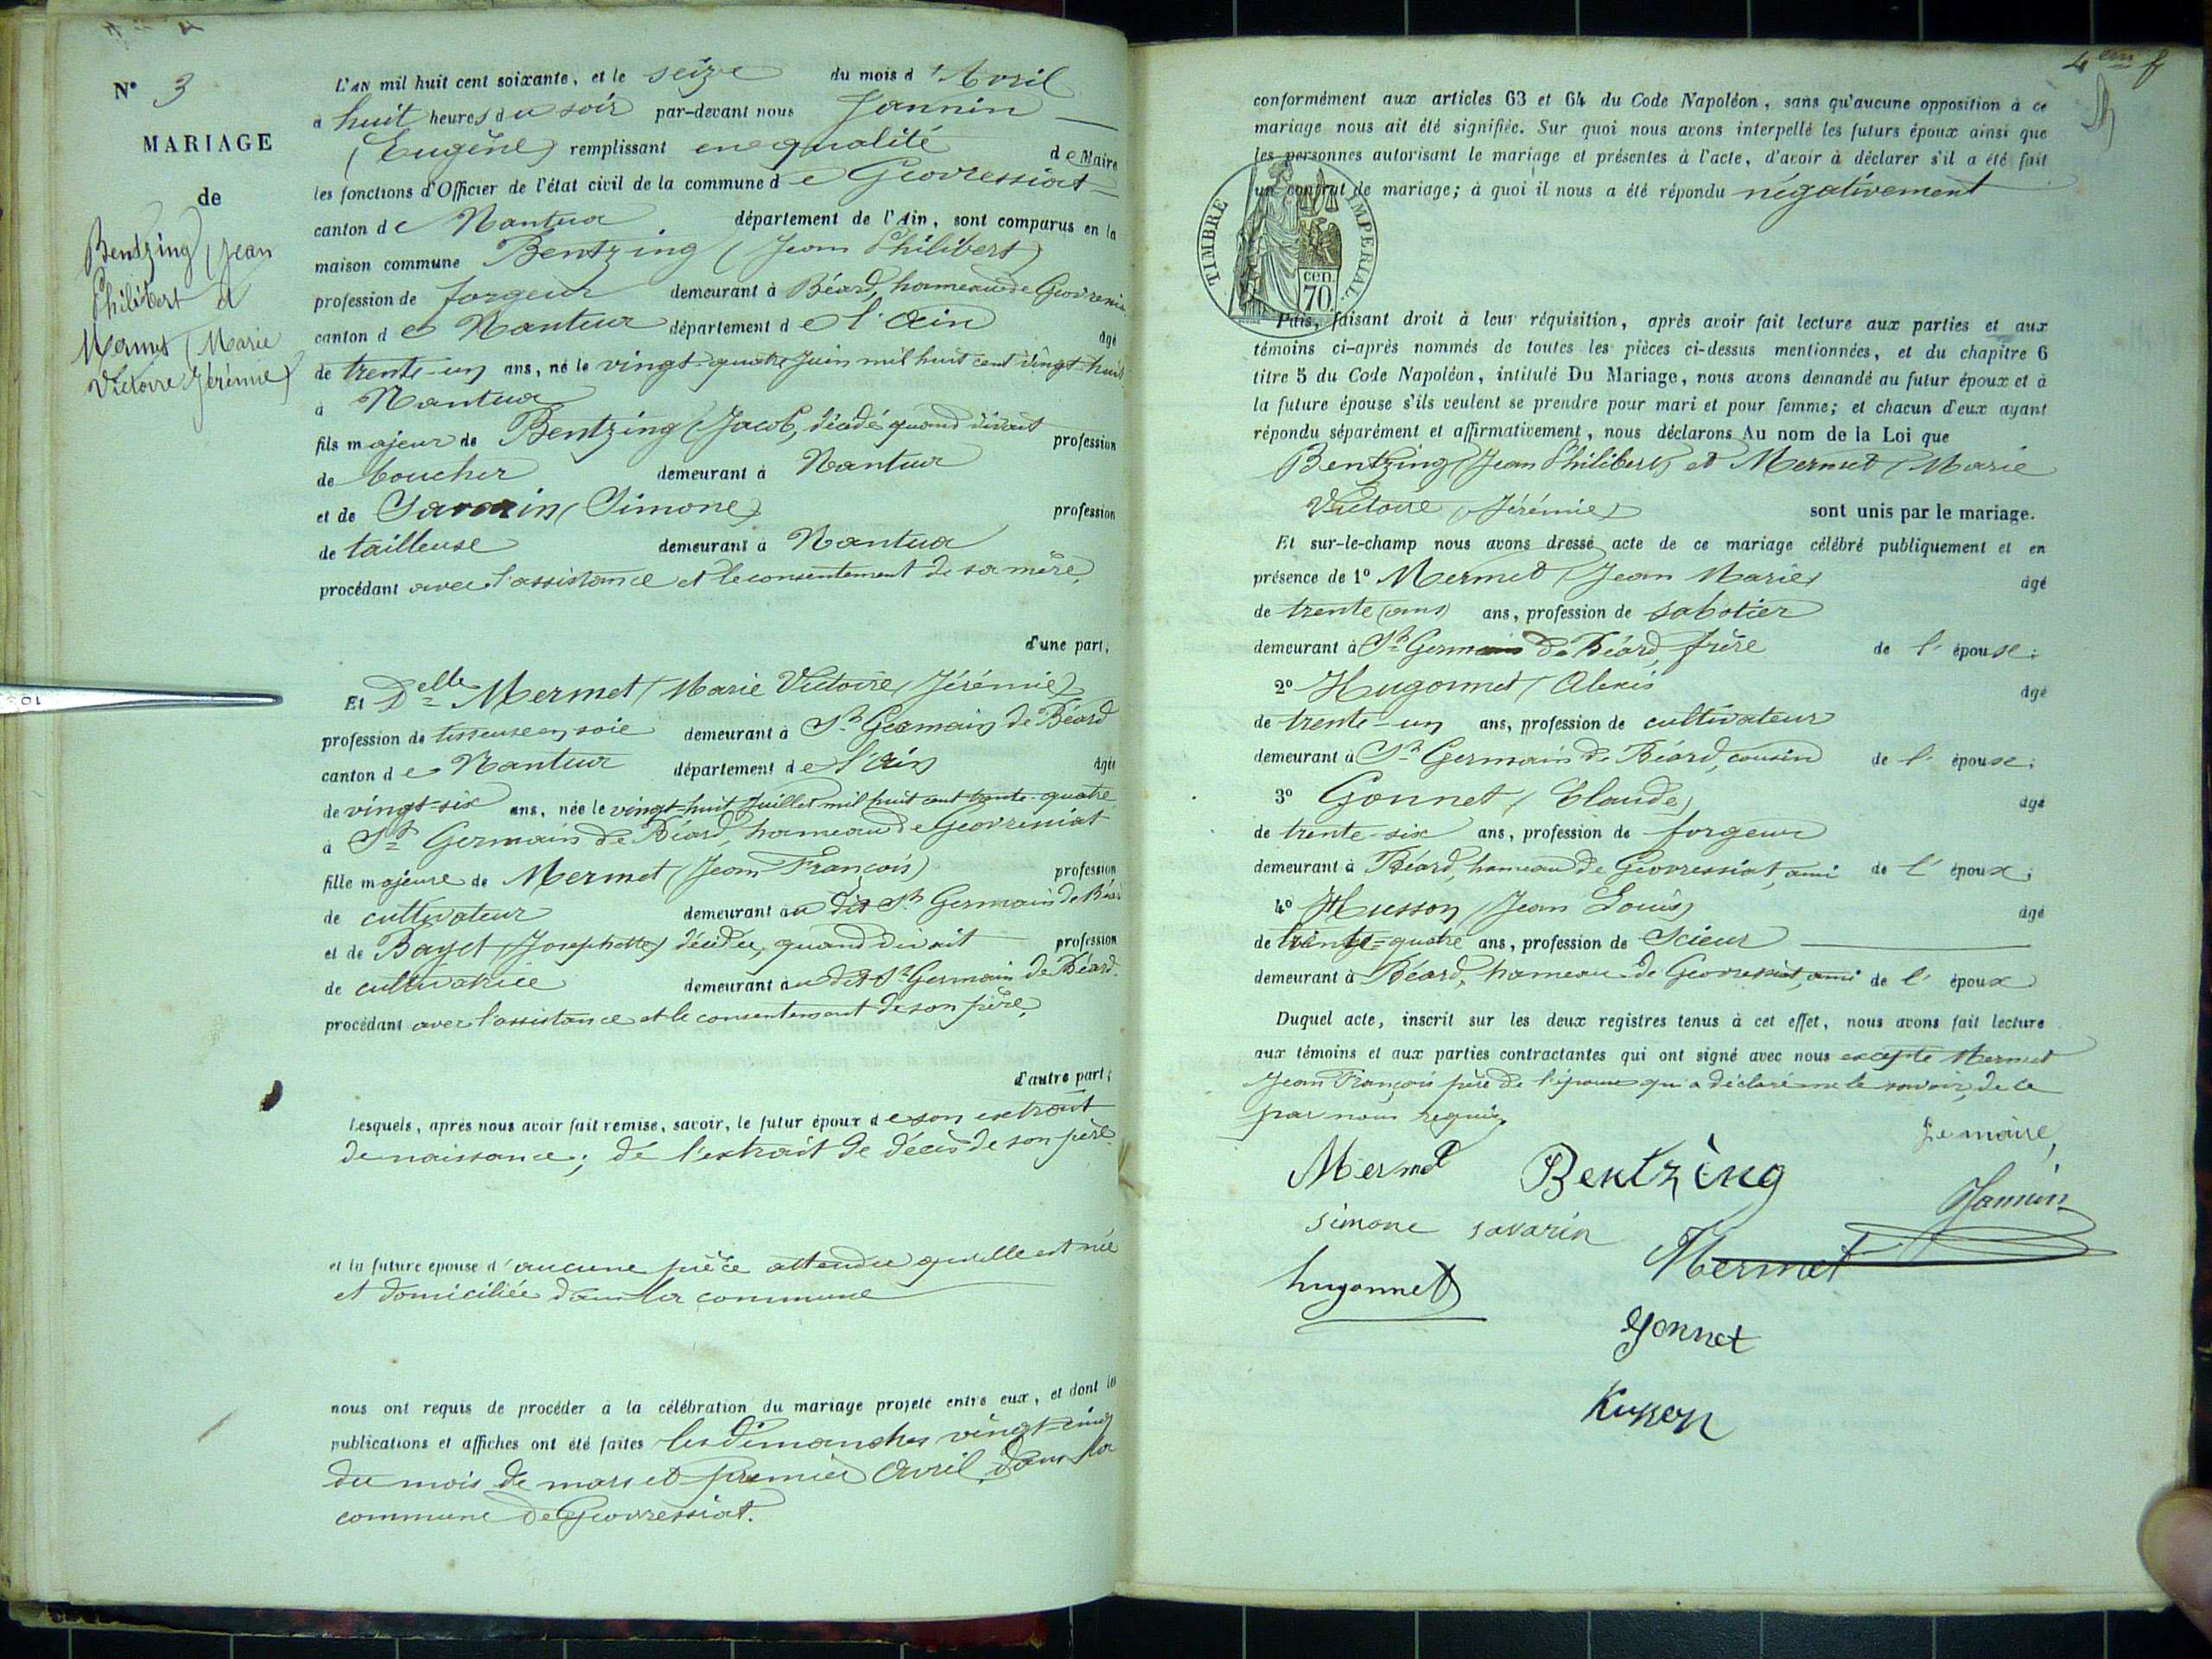 N° 3
MARIAGE
de
Bentzing (Jean
Philibert et
Mermet (Marie
Victoire Jérémie)
L'AN mil huit cent soixante, et le seize du mois d'Avril
à huit heures du soir par-devant nous Jannin
(Eugène) remplissant en qualité de Maire
les fonctions d'Officier de l'état civil de la commune de Geovressiat
canton de Nantua département de l'Ain, sont comparus en la
maison commune Bentzing (Jean Philibert)
profession de forgeur demeurant à Béard, hameau de
canton de Nantua département de l'Ain âgé
de trente-un ans, né le vingt-quatre Juin mil huit cent vingt-huit
à Nantua
fils majeur de Bentzing (Jacob, décédé quand vivait profession
de boucher demeurant à Nantua
et de Savarin (Simone) profession
de tailleuse demeurant à Nantua
procédant avec l'assistance et le consentement de sa mère,
d'une part;
Et Delle Mermet (Marie Victoire, Jérémie)
profession de tisseuse en soie demeurant à St Germain de Béard
canton de Nantua département de l'Ain âgée
de vingt-six ans, née le vingt-huit Juillet mil huit cent trente-quatre
à St Germain de Béard, hameau de Geovreissiat
fille majeure de Mermet (Jean François) profession
de cultivateur demeurant au dit St Germain de Béard
et de Bayet (Josephette) décédée, quand vivait profession
de cultivatrice demeurant au dit St Germain de Béard
procédant avec l'assistance et le consentement de son père,
d'autre part;
Lesquels, après nous avoir fait remise, savoir, le futur époux de son extrait
de naissance; de l'extrait de décès de son père
et la future épouse d'aucune pièce attendu qu'elle est née
et domiciliée dans la commune
nous ont requis de procéder à la célébration du mariage projeté entre eux, et dont les
publications et affiches ont été faites les dimanches vingt-cinq
du mois de mars et premier Avril, dans la
commune de Geovressiat.
4em f
conformément aux articles 63 et 64 du Code Napoléon, sans qu'aucune opposition à ce
mariage nous ait été signifiée. Sur quoi nous avons interpellé les futurs époux ainsi que
les personnes autorisant le mariage et présentes à l'acte, d'avoir à déclarer s'il a été fait
un contrat de mariage; à quoi il nous a été répondu négativement
TIMBRE IMPERIAL.
cen.
70.
Puis, faisant droit à leur réquisition, après avoir fait lecture aux parties et aux
témoins ci-après nommés de toutes les pièces ci-dessus mentionnées, et du chapitre 6
titre 5 du Code Napoléon, intitulé Du Mariage, nous avons demandé au futur époux et à
la future épouse s'ils veulent se prendre pour mari et pour femme; et chacun d'eux ayant
répondu séparément et affirmativement, nous déclarons Au nom de la Loi que
Bentzing (Jean Philibert) et Mermet (Marie
Victoire, Jérémie) sont unis par le mariage.
Et sur-le-champ nous avons dressé acte de ce mariage célébré publiquement et en
présence de 1° Mermet (Jean Marie) âgé
de trente (ans) ans, profession de sabotier
demeurant à St Germain de Béard, frère de l'épouse;
2° Hugonnet (Alexis âgé
de trente-un ans, profession de cultivateur
demeurant à St Germain de Béard, cousin de l'épouse;
3° Gonnet (Claude) âgé
de trente-six ans, profession de forgeur
demeurant à Béard, hameau de Geovressiat, ami de l'époux;
4° Husson (Jean Louis) âgé
de trente-quatre ans, profession de Scieur
demeurant à Béard, hameau de Geovressiat, ami de l'époux
Duquel acte, inscrit sur les deux registres tenus à cet effet, nous avons fait lecture
aux témoins et aux parties contractantes qui ont signé avec nous excepté Mermet
Jean François père de l'épouse qui a déclaré ne le savoir, de ce
par nous requis.
Le maire,
Mermet Bentzing
Jannin
simone savarin
Mermet
hugonnet
gonnet